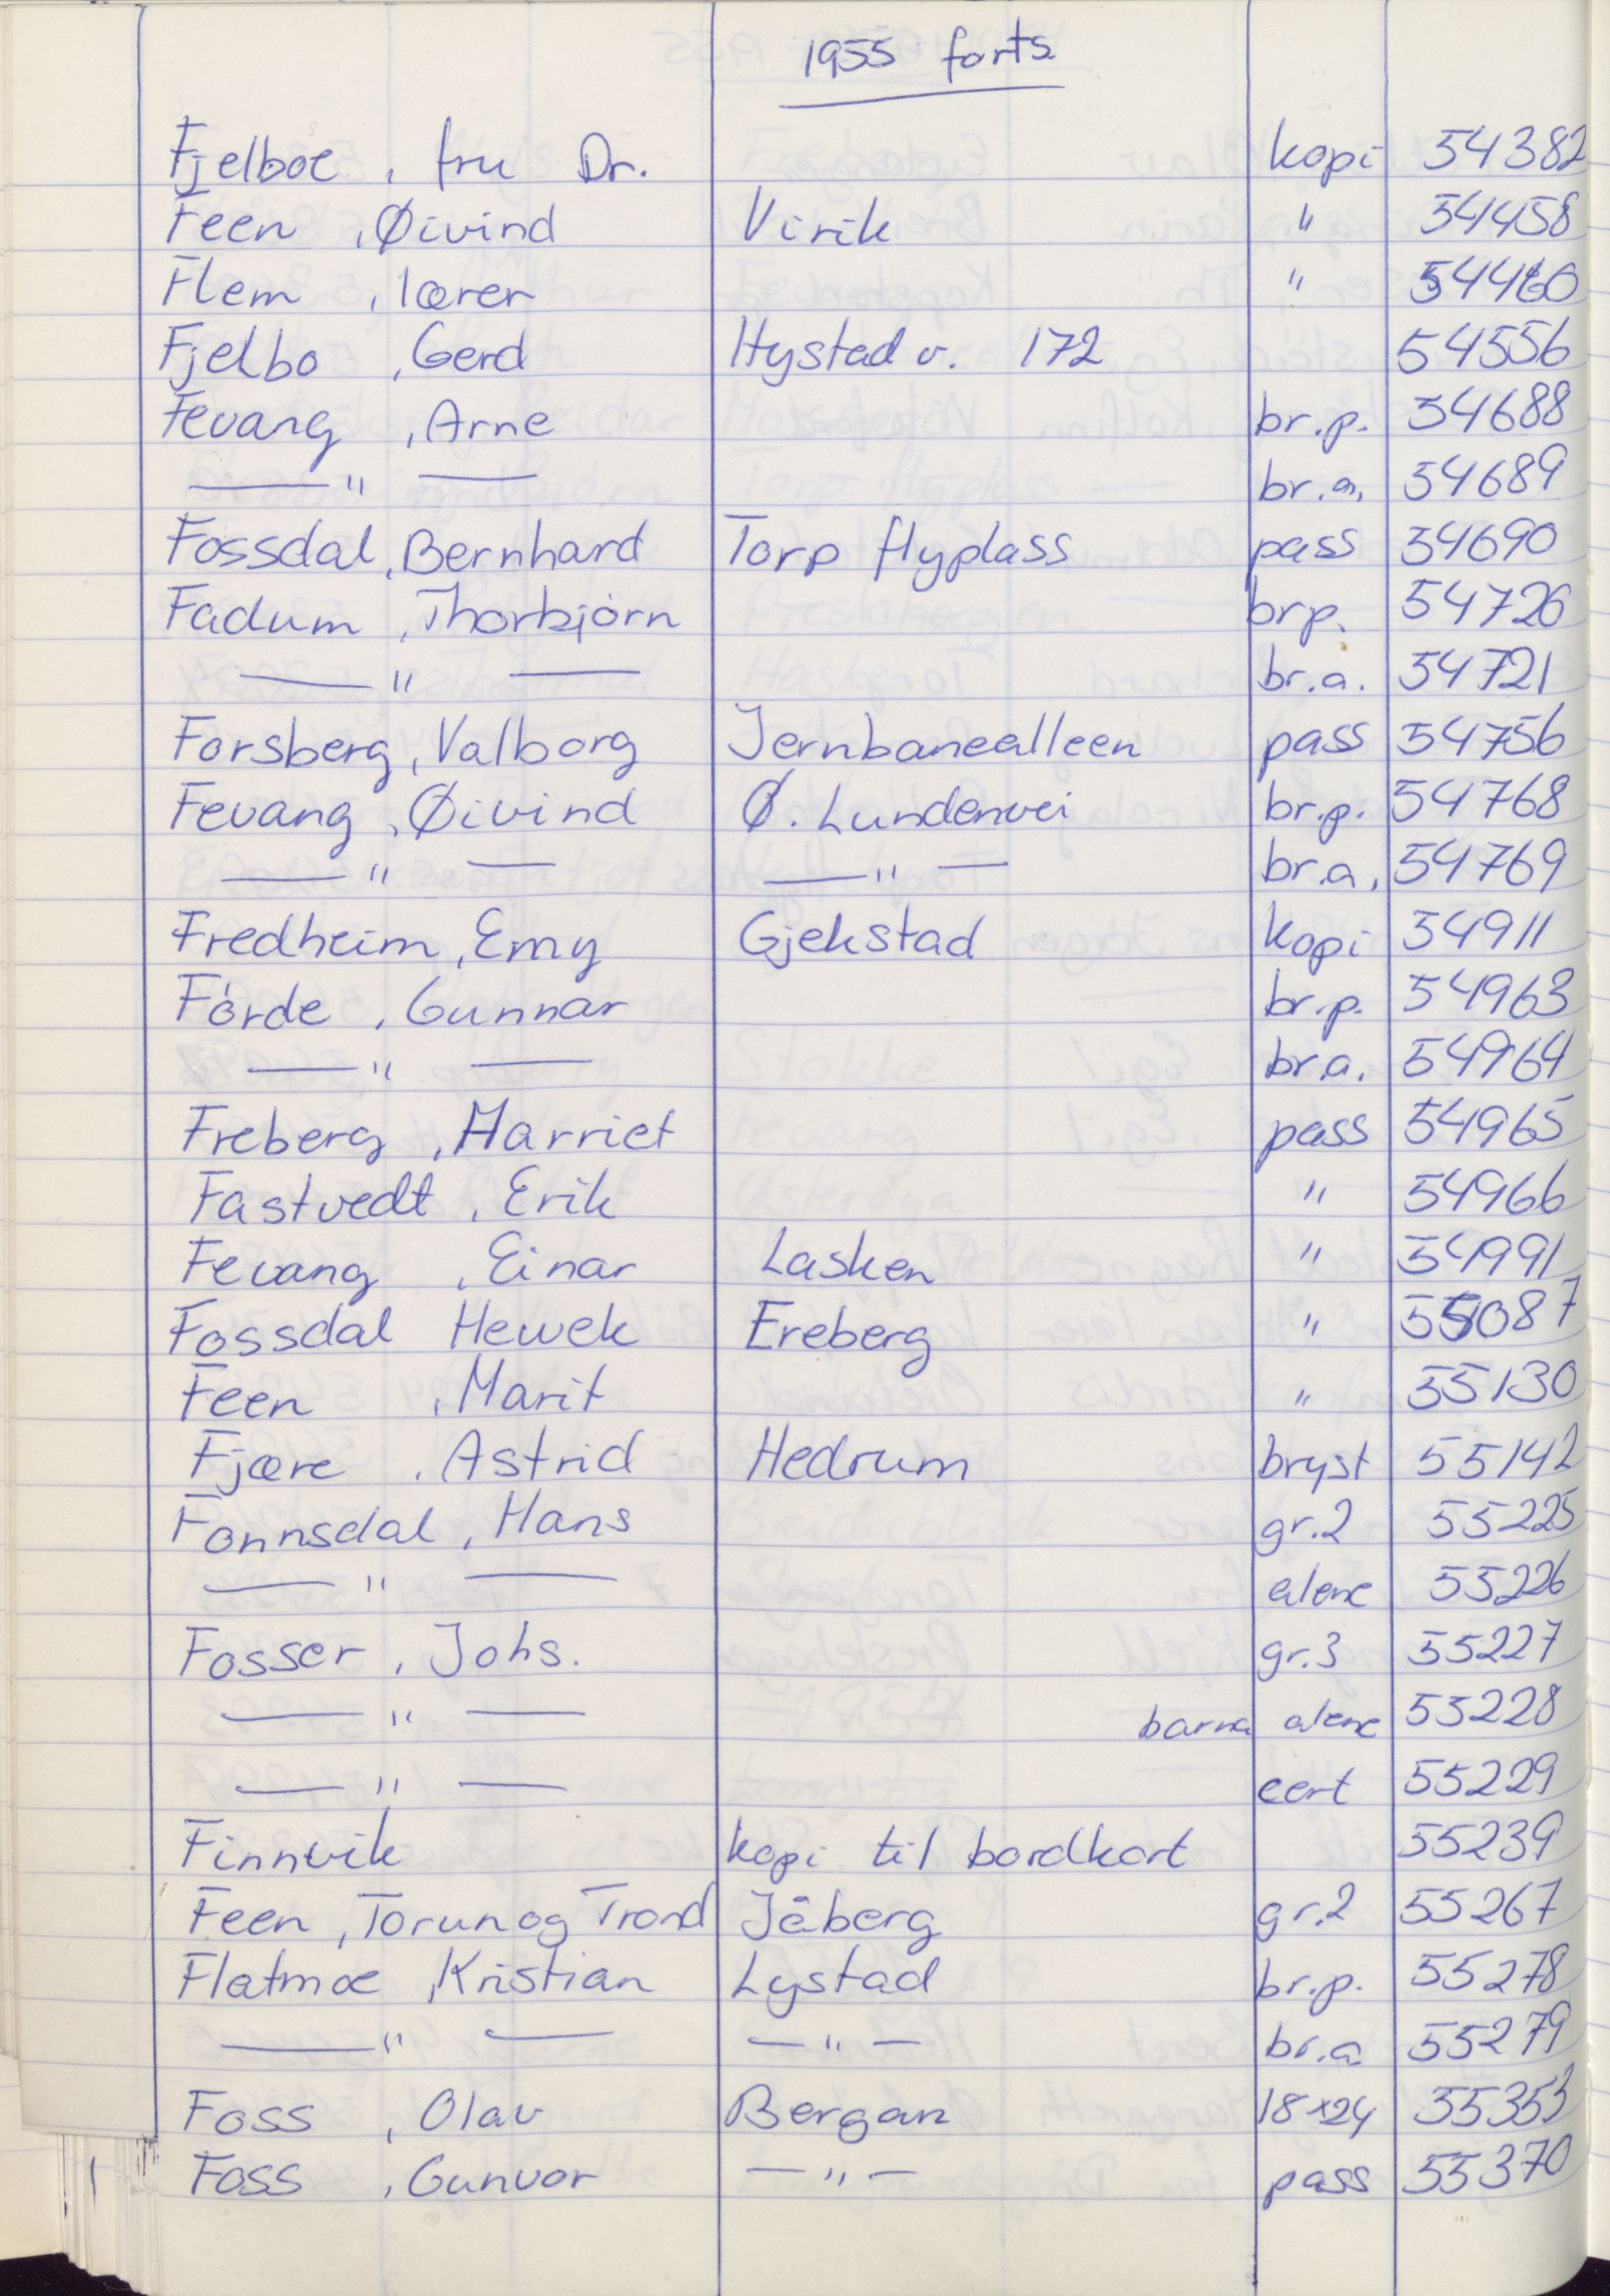 1955 forts
Fjelboe, fru Dr. kopi 54382
Feen, Øivind Virik " 54458
Flem, lærer " 54460
Fjelbo, Gerd Hystad v. 172 54556
Fevang, Arne br.p. 54688
—"— br.a. 54689
Fossdal, Bernhard Torp flyplass pass 54690
Fadum, Thorbjörn br.p. 54720
—"— br.a. 54721
Forsberg, Valborg Jernbanealleen pass 54756
Fevang, Øivind Ø. Lundenvei br.p. 54768
—"— —"— br.a. 54769
Fredheim, Emy Gjekstad kopi 54911
Förde, Gunnar br.p. 54963
—"— br.a. 54964
Freberg, Harriet pass 54965
Fastvedt, Erik " 54966
Fevang, Einar Lasken " 54991
Fossdal Hewek Ereberg " 55087
Feen, Marit " 55130
Fjære, Astrid Hedrum bryst 55142
Fonnsdal, Hans gr.2 55225
—"— alene 55226
Fosser, Johs. gr.3 55227
—"— barna alene 55228
—"— cert 55229
Finnvik kopi til bordkort 55239
Feen, Torun og Trond Jåberg gr.2 55267
Flatmoe, Kristian Lystad br.p. 55278
—"— —"— br.a 55279
Foss, Olav Bergan 18x24 55353
Foss, Gunvor —"— pass 55370